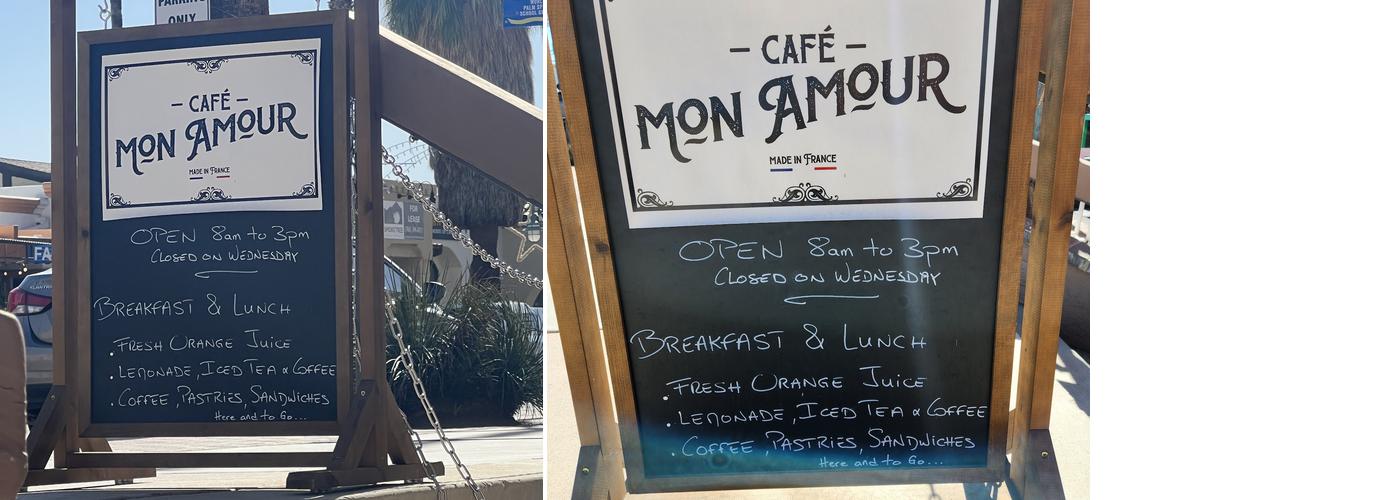 PARKING
ONLY
– CAFÉ –
MON AMOUR
MADE IN FRANCE
OPEN 8am to 3pm
CLOSED ON WEDNESDAY
BREAKFAST & LUNCH
. FRESH ORANGE JUICE
. LEMONADE, ICED TEA & COFFEE
. COFFEE, PASTRIES, SANDWICHES
Here and to Go...
FOR
LEASE
FA
– CAFÉ –
MON AMOUR
MADE IN FRANCE
OPEN 8am to 3pm
CLOSED ON WEDNESDAY
BREAKFAST & LUNCH
. FRESH ORANGE JUICE
. LEMONADE, ICED TEA & COFFEE
. COFFEE, PASTRIES, SANDWICHES
Here and to Go...